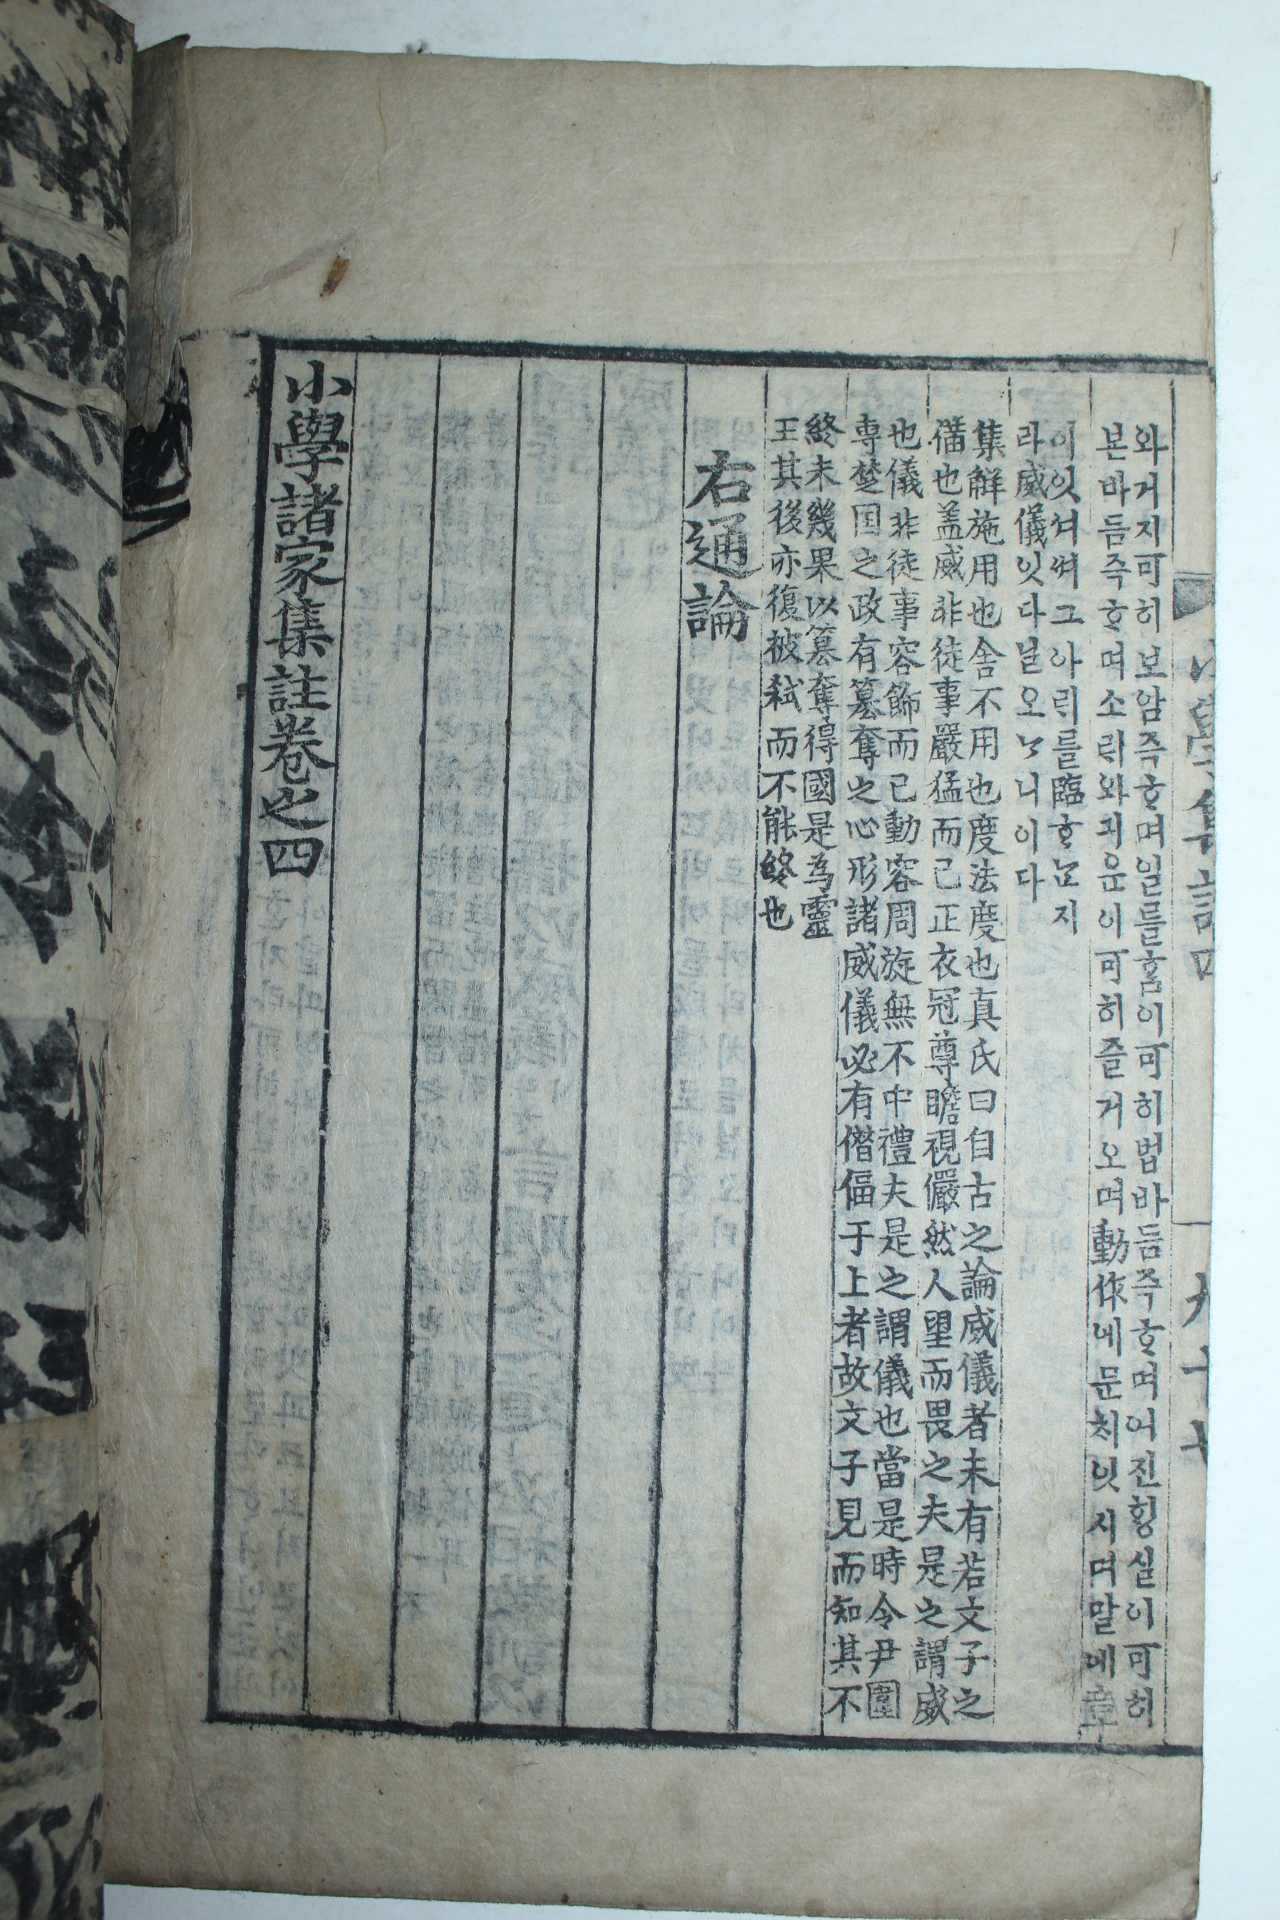 와거지可히보암즉ᄒᆞ며일를홈이可히법바듬즉ᄒᆞ며어진횡실이可히
본바듬즉ᄒᆞ며소ᄅᆡ와긔운이可히즐거오며動作에문치잇시며말에章
이잇셔ᄡᅥ그아ᄅᆡ를臨ᄒᆞᄂᆞᆫ지
라威儀잇다닐오ᄂᆞ니이다
集解施用也舍不用也度法度也真氏曰自古之論威儀者未有若文子之
備也盖威非徒事嚴猛而已正衣冠尊瞻視儼然人望而畏之夫是之謂威
也儀非徒事容飾而已動容周旋無不中禮夫是之謂儀也當是時令尹圍
專楚国之政有簒奪之心形諸威儀必有僭偪于上者故文子見而知其不
終未幾果以簒奪得國是為靈
王其後亦復被弑而不能終也
右通論
小學諸家集註卷之四